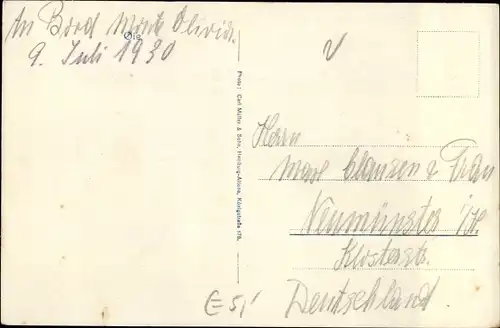 An Bord Monte Olivia.
Oie
9. Juli 1930
Photo: Carl Müller & Sohn, Hamburg-Altona, Königstraße 178.
Herrn
Max Clausen & Frau
Neumünster i/H.
Klosterstr.
Deutschland.
E 5,-